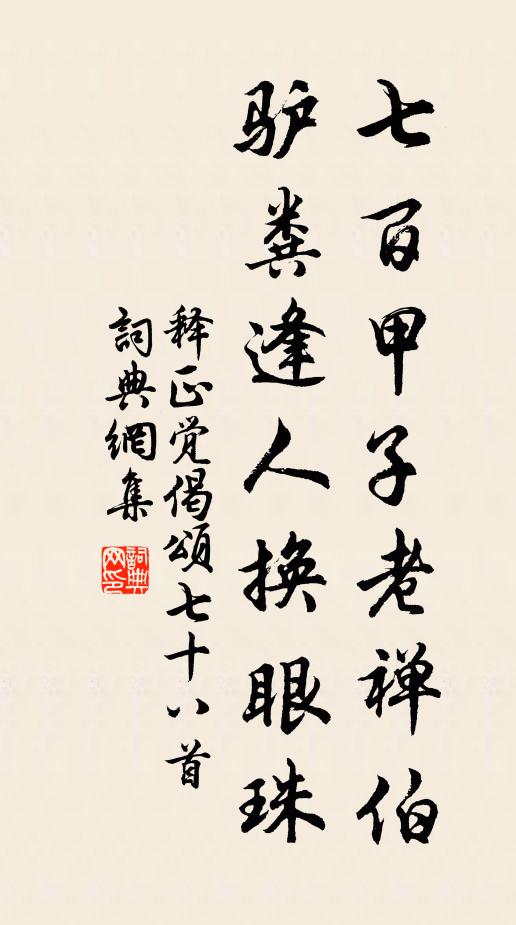 七百甲子老禅伯
驴粪逢人换眼珠
释正觉偈颂七十八首
詞典網集
詞典网印